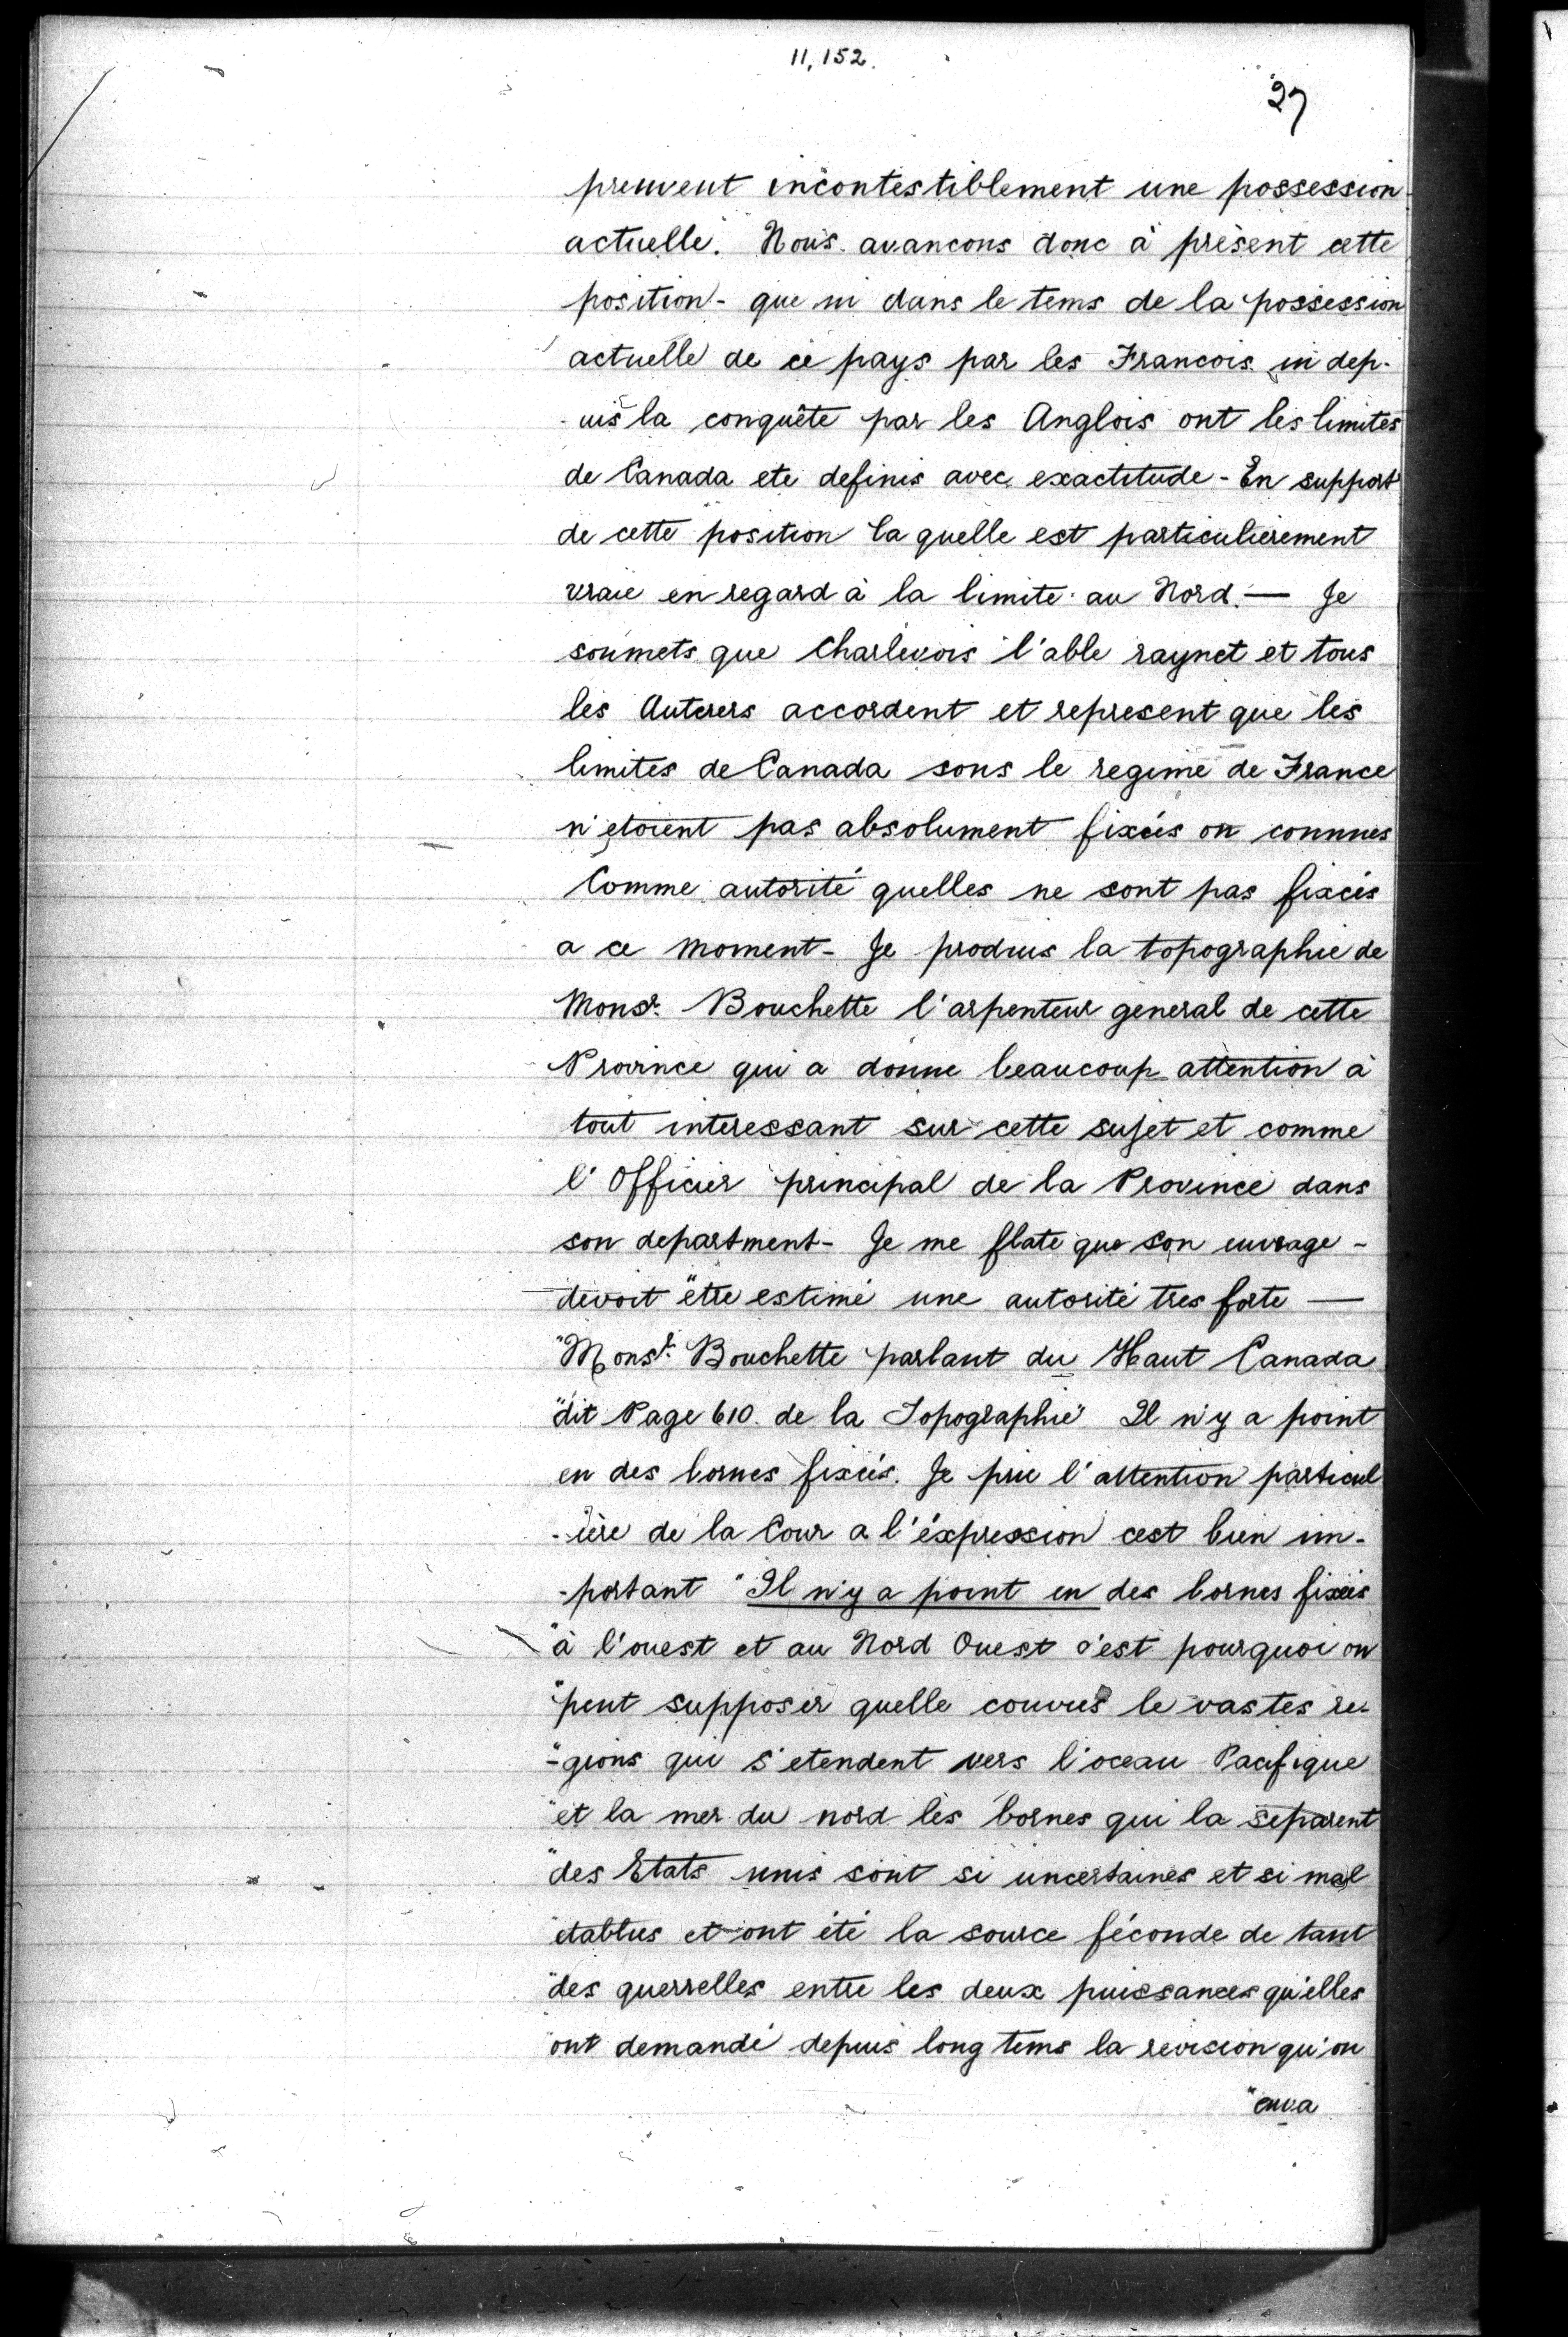 11,152.
27
preuvent incontestiblement une possession
actuelle. Nous avancons donc à présent cette
position - que ni dans le tems de la possession
actuelle de ce pays par les Francois ni dep-
-uis la conquête par les Anglois ont les limites
de Canada ete definis avec exactitude - En support
de cette position la quelle est particulierement
vraie en regard à la limite au Nord. — Je
soumets que Charlevois l'able raynet et tous
les Auterers accordent et represent que les
limites de Canada sous le regime de France
n'etoient pas absolument fixées on connues
Comme autorité quelles ne sont pas fixées
a ce moment - Je produis la topographie de
Monsr. Bouchette l'arpenteur general de cette
Province qui a donne beaucoup attention à
tout interessant sur cette sujet et comme
l'Officier principal de la Province dans
son department - Je me flate que son euvrage -
devoit être estimé une autorité tres forte —
"Monsr. Bouchette parlant du Haut Canada
"dit Page 610. de la Topographie Il n'y a point
en des bornes fixées. Je prie l'attention particul
-ière de la Cour a l'éxpression cest bien im-
-portant "Il n'y a point en des bornes fixées
"à l'ouest et au Nord Ouest c'est pourquoi on
"peut supposer quelle couvres le vastes re-
"-gions qui s'etendent vers l'oceau Pacifique
"et la mer du nord les bornes qui la separent
"des Etats unis sont si uncertaines et si mal
"etablies et ont été la source féconde de tant
"des querrelles entre les deux puissances qu'elles
"ont demandé depuis long tems la revision qu'on
"en a